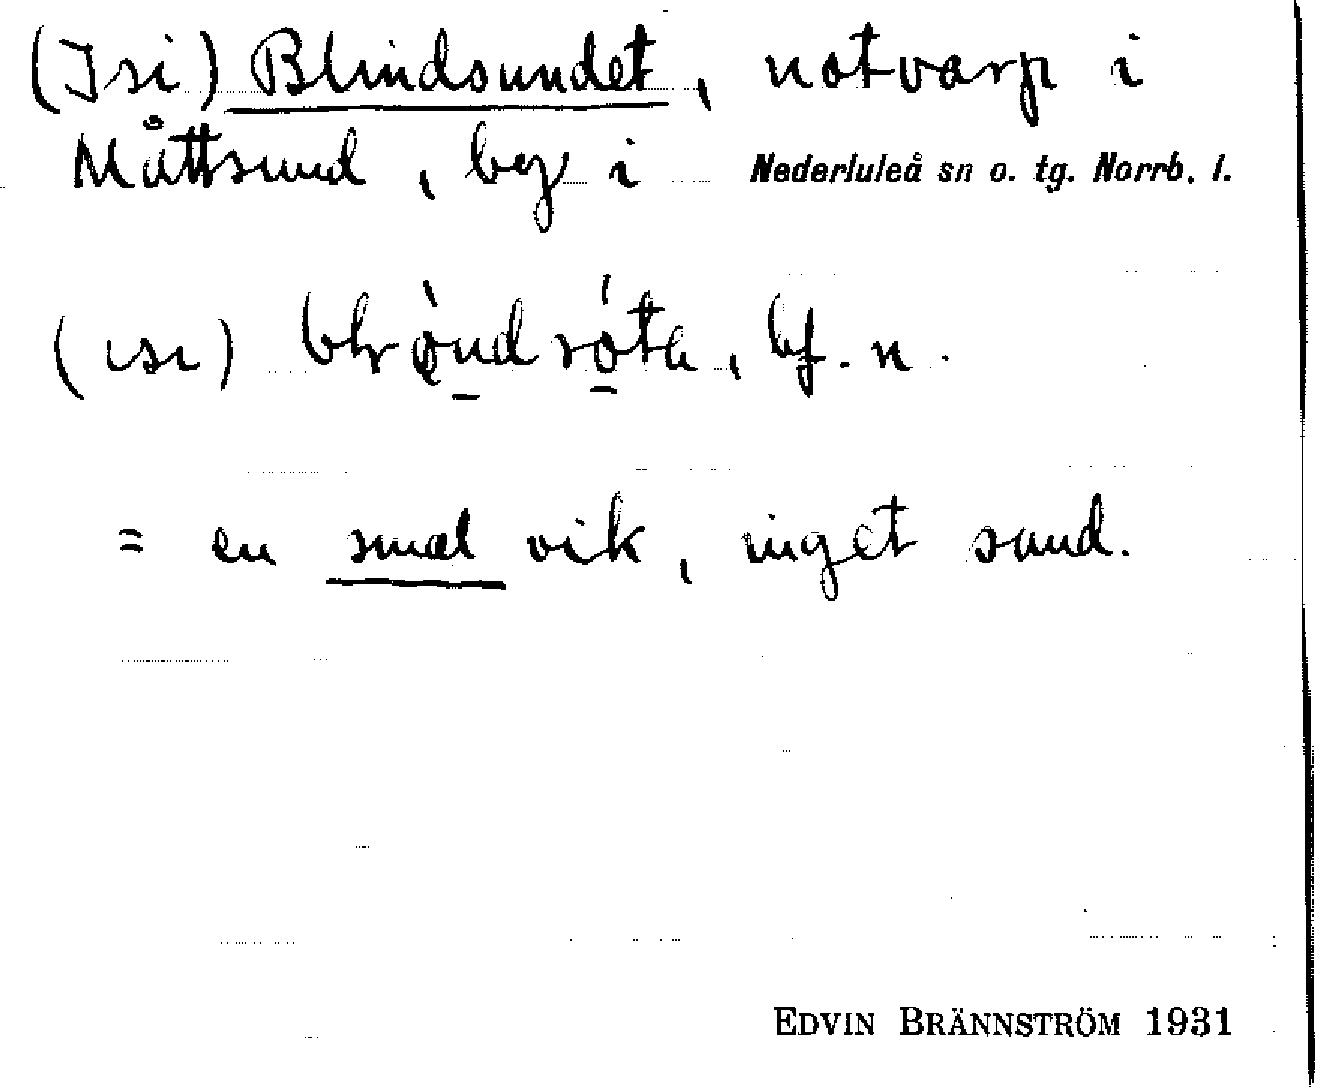 (Isi) Blindsundet, notvarp i
Måttsund, by i Nederluleå sn o. tg. Norrb. l.
(ısı) bf. n.
= en smal vik, inget sund.
EDVIN BRÄNNSTRÖM 1931